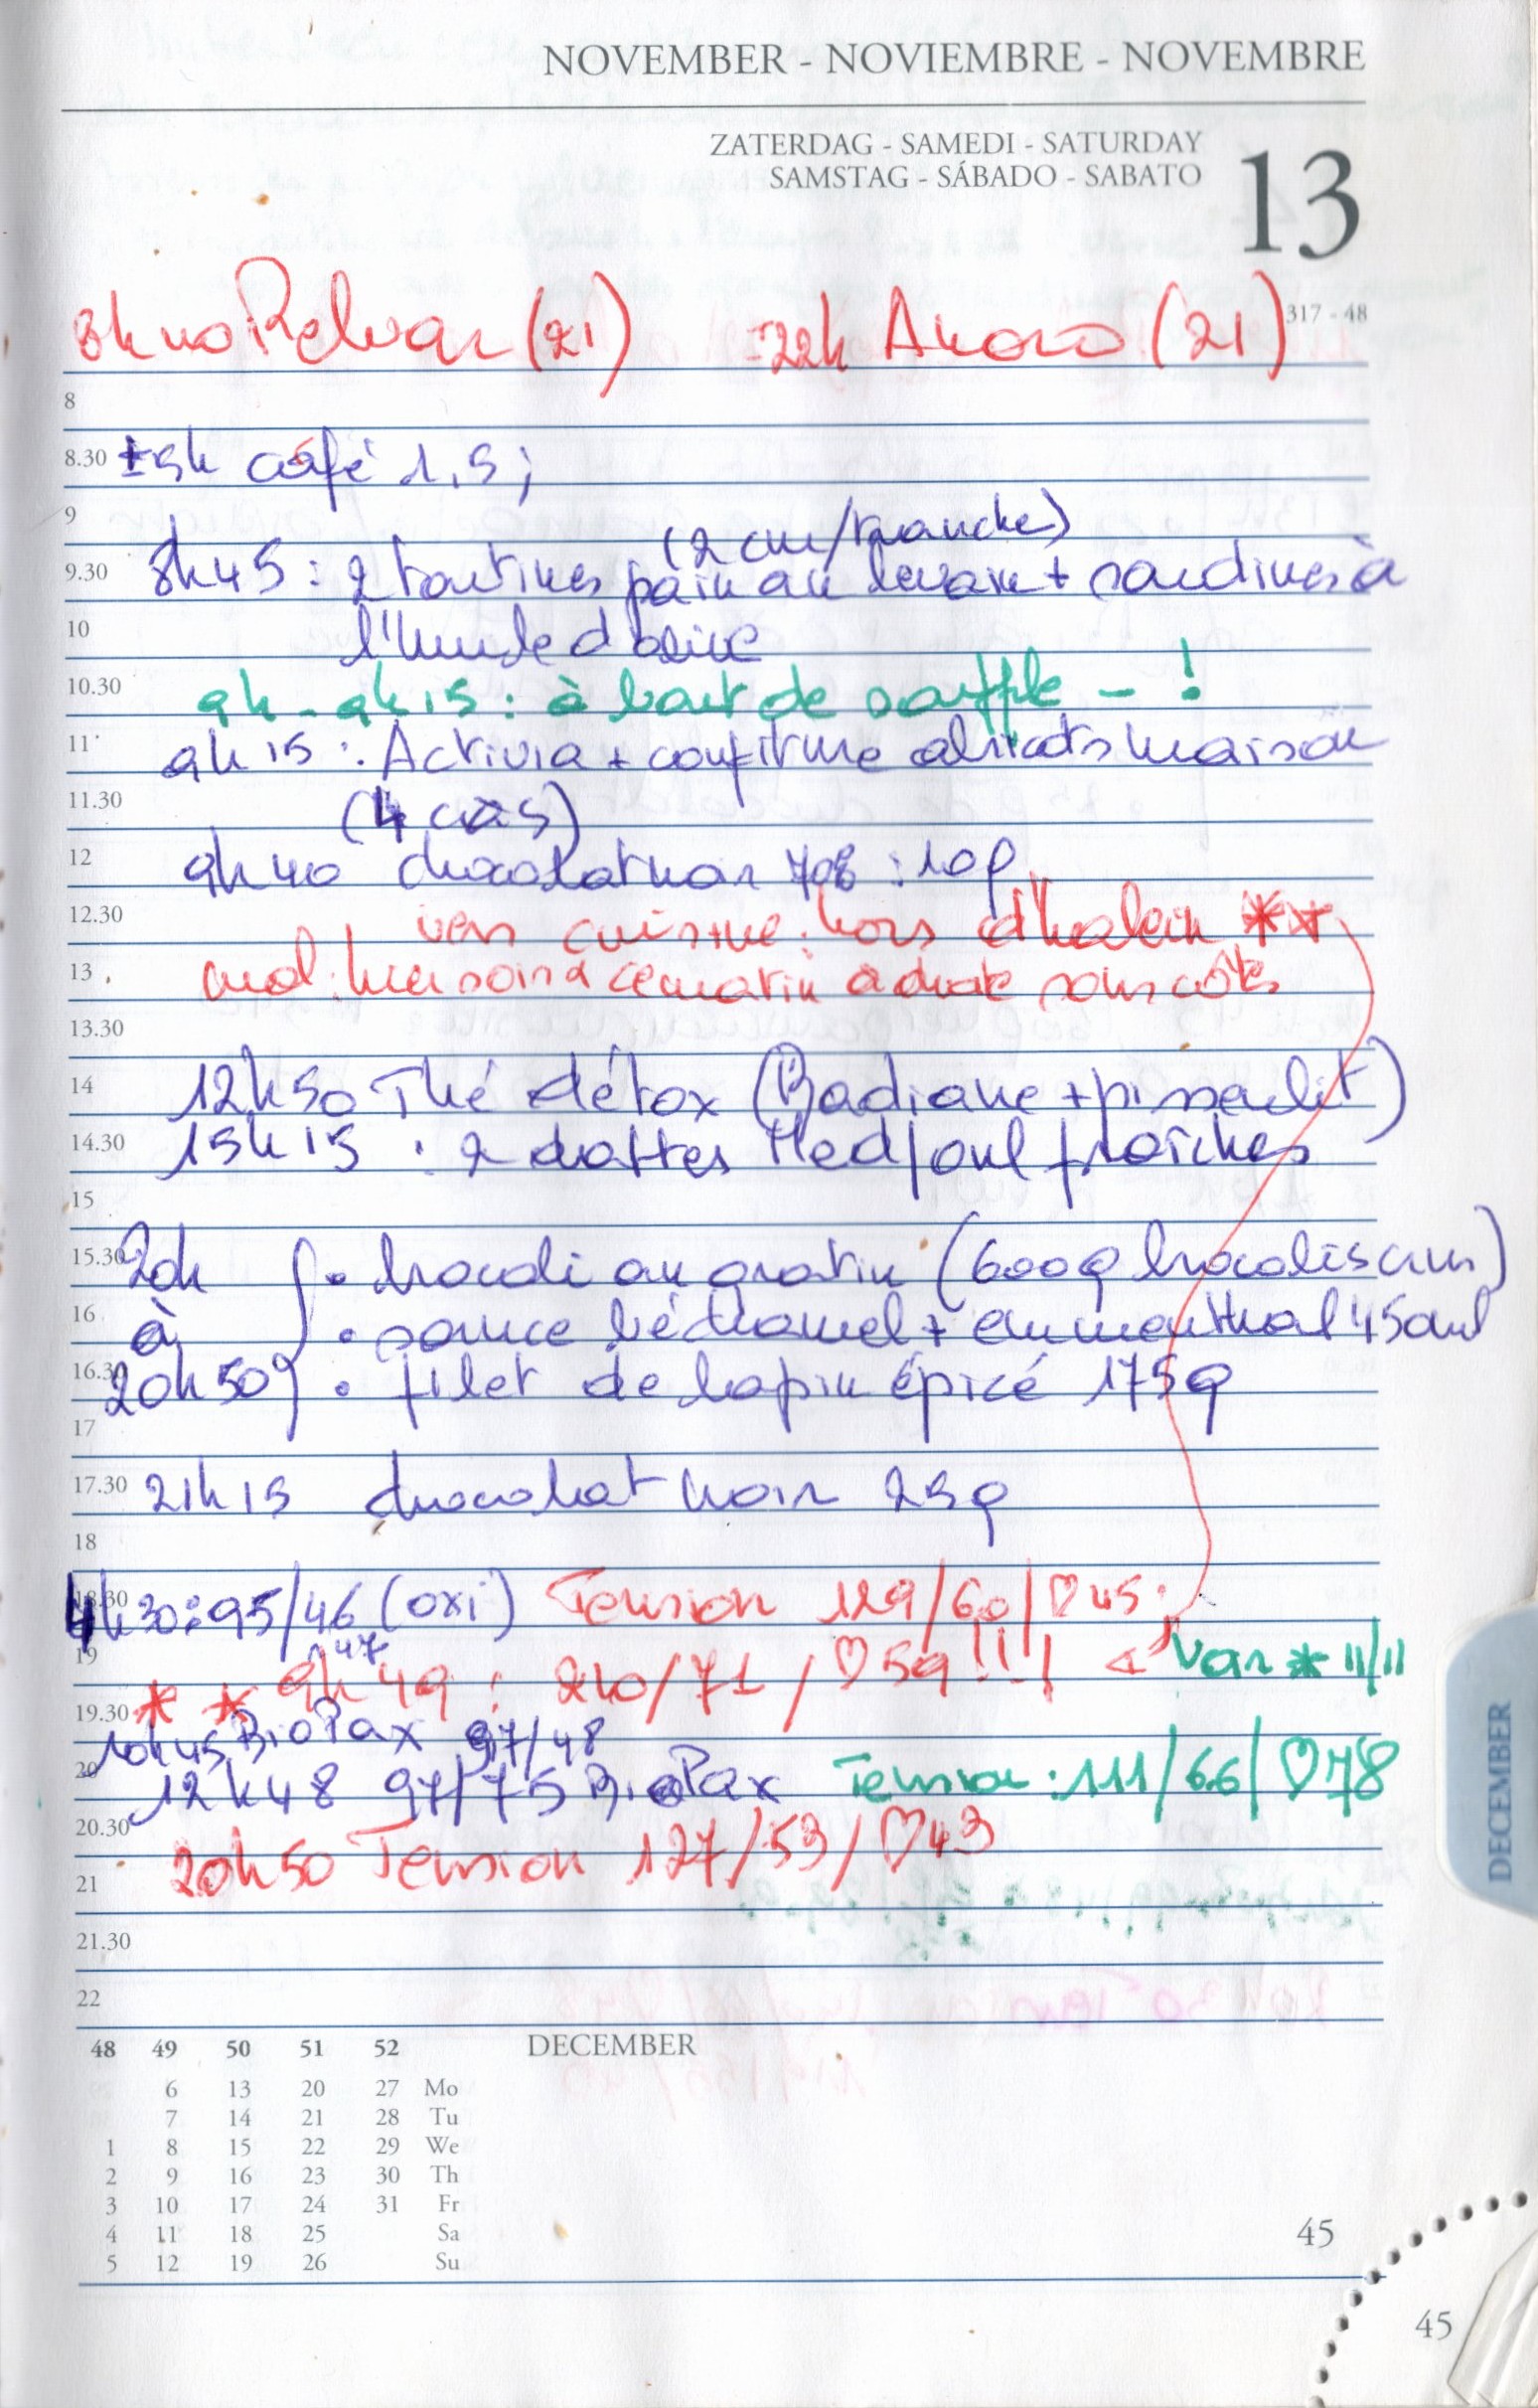 NOVEMBER - NOVIEMBRE - NOVEMBRE
ZATERDAG - SAMEDI - SATURDAY
SAMSTAG - SÁBADO - SABATO
13
317 - 48
8h40 Relvar (21) 22h Anoro (21)
8
8.30 ±5h café 1,5;
9 (2 cm/tranche)
9.30 8h45 : 2 tartines pain au levain + sardines à
10 l'huile d'olive
10.30 9h - 9h15 : à bout de souffle - !
11 9h15 : Activia + confiture abricots maison
11.30 (4 càs)
12 9h40 chocolat noir 70% : 10g
12.30 vers cuisine : hors d'halein **
13 ce matin à droite sous côtes
13.30
14 12h50 Thé détox (Badiane + pissenlit)
14.30 15h15 : 2 dattes Medjoul fraîches
15
15.30 20h • brocoli au gratin (600g brocolis crus)
16 à • sauce béchamel + emmenthal 45
16.30 20h50 • filet de lapin épicé 175g
17
17.30 21h15 chocolat noir 25g
18
18.30 4h30 : 95/46 (oxi) Tension 129/60/♡45
19 47
** 9h49 : 210/71/♡59 !!! Var * 11/11
19.30 10h45 BioPax 97/48
20 12h48 97/75 BioPax Tension : 111/66/♡78
20.30 20h50 Tension 127/53/♡43
21
21.30
22
48 49 50 51 52 DECEMBER
6 13 20 27 Mo
7 14 21 28 Tu
1 8 15 22 29 We
2 9 16 23 30 Th
3 10 17 24 31 Fr
4 11 18 25 Sa
5 12 19 26 Su
45
45
DECEMBER